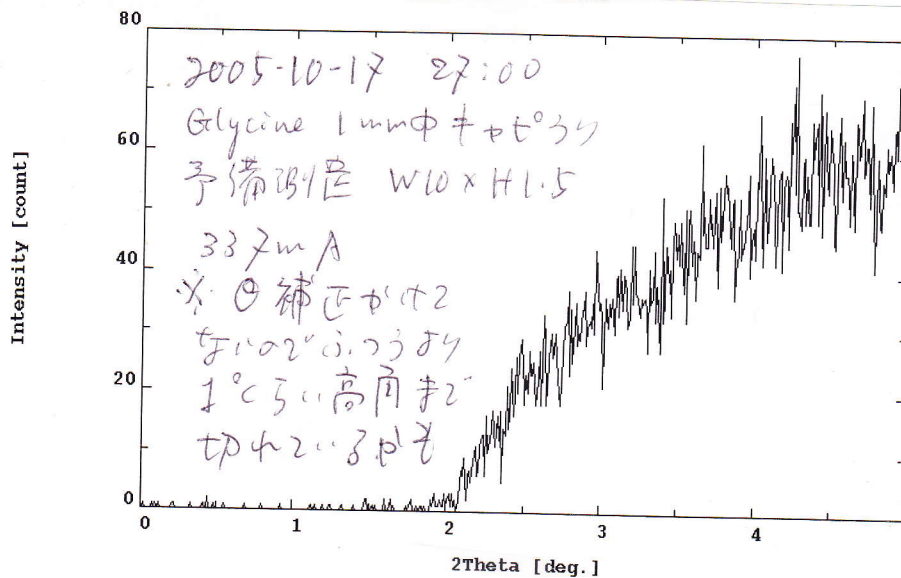 80
60
40
20
0
Intensity [count]
2005-10-17 27:00
Glycine 1mmΦキャピラリ
予備測定 W10×H1.5
337mA
※ θ補正かけて
ないのでふつうより
1°くらい高角まで
切れているかも
0 1 2 3 4
2Theta [deg.]